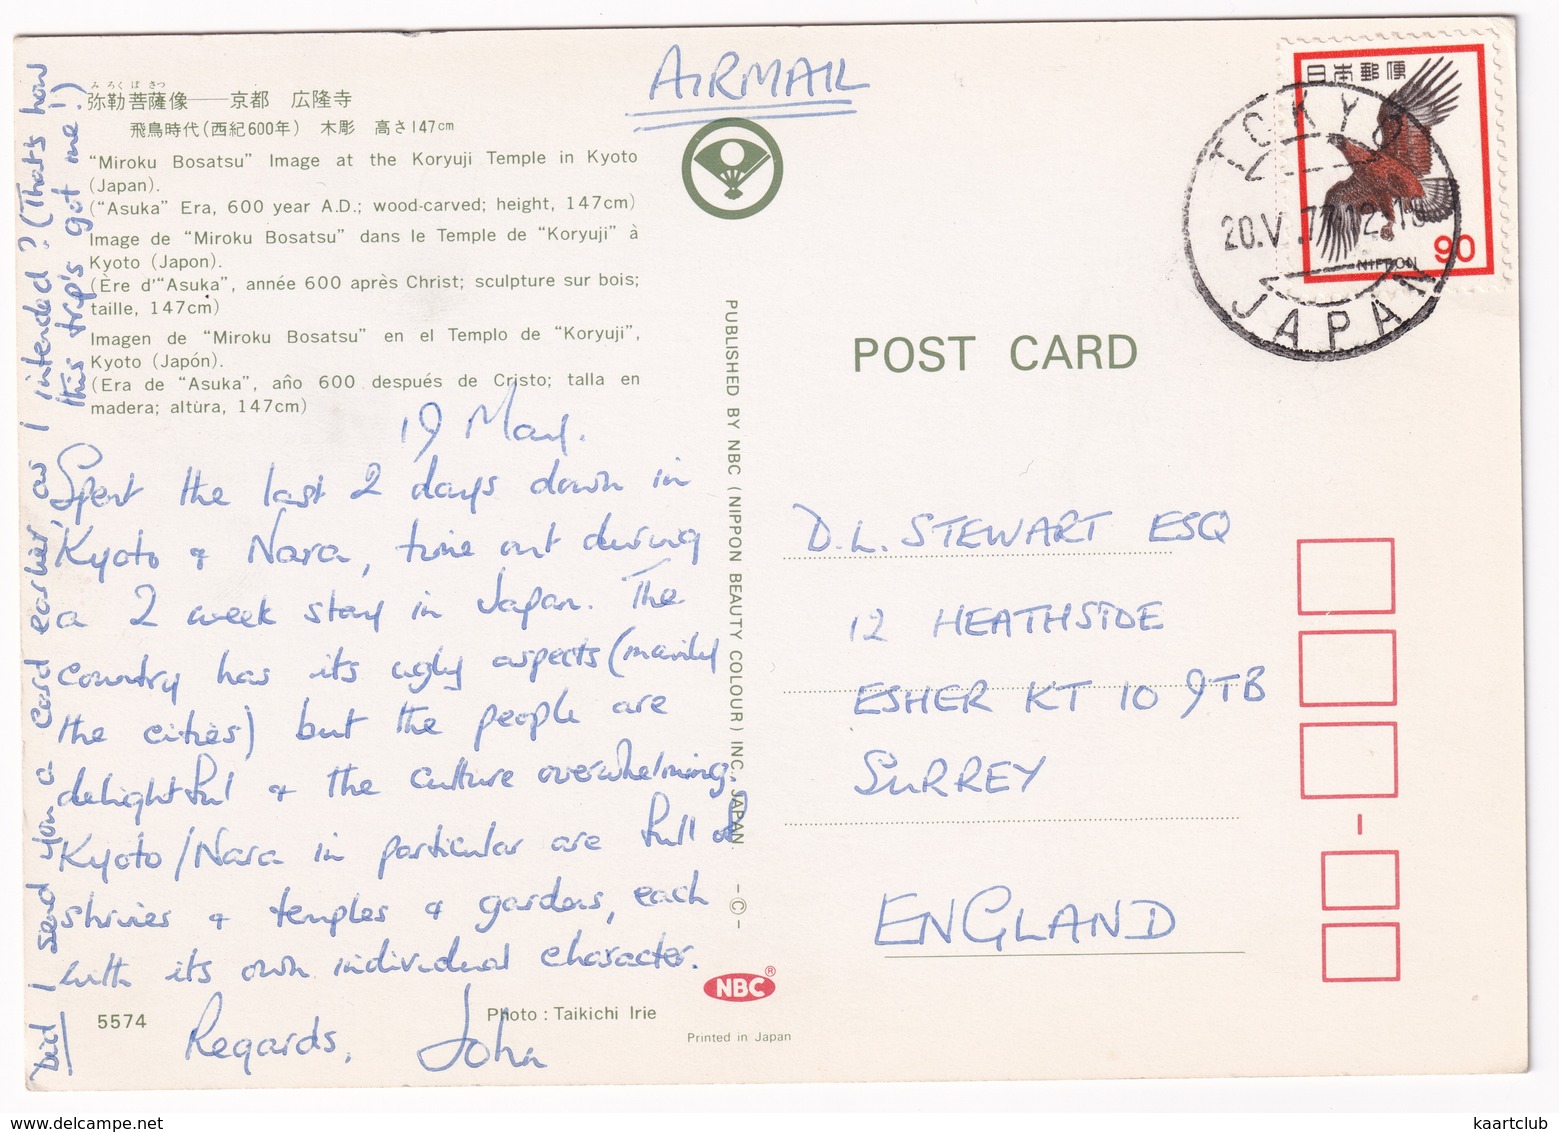 AIRMAIL
みろくぼさつ
弥勒菩薩像——京都 広隆寺
飛鳥時代(西紀600年) 木彫 高さ147cm
"Miroku Bosatsu" Image at the Koryuji Temple in Kyoto
(Japan).
("Asuka" Era, 600 year A.D.; wood-carved; height, 147cm)
Image de "Miroku Bosatsu" dans le Temple de "Koryuji" à
Kyoto (Japon).
(Ère d'"Asuka", année 600 après Christ; sculpture sur bois;
taille, 147cm)
Imagen de "Miroku Bosatsu" en el Templo de "Koryuji",
Kyoto (Japón).
(Era de "Asuka", año 600 después de Cristo; talla en
madera; altùra, 147cm)
19 May.
Spent the last 2 days down in
Kyoto & Nara, time out during
a 2 week stay in Japan. The
country has its ugly aspects (mainly
the cities) but the people are
delightful & the culture overwhelming.
Kyoto/Nara in particular are full of
shrines & temples & gardens, each
with its own individual character.
Regards, John
Did I send you a card earlier, as I intended? (That's how
this trip's got me!)
5574
Photo : Taikichi Irie
PUBLISHED BY NBC (NIPPON BEAUTY COLOUR) INC. JAPAN —©—
NBC®
Printed in Japan
POST CARD
日本郵便
90
NIPPON
TOKYO
20.V.77 12-18
JAPAN
D.L. STEWART ESQ
12 HEATHSIDE
ESHER KT 10 9TB
SURREY
ENGLAND
kaartclub